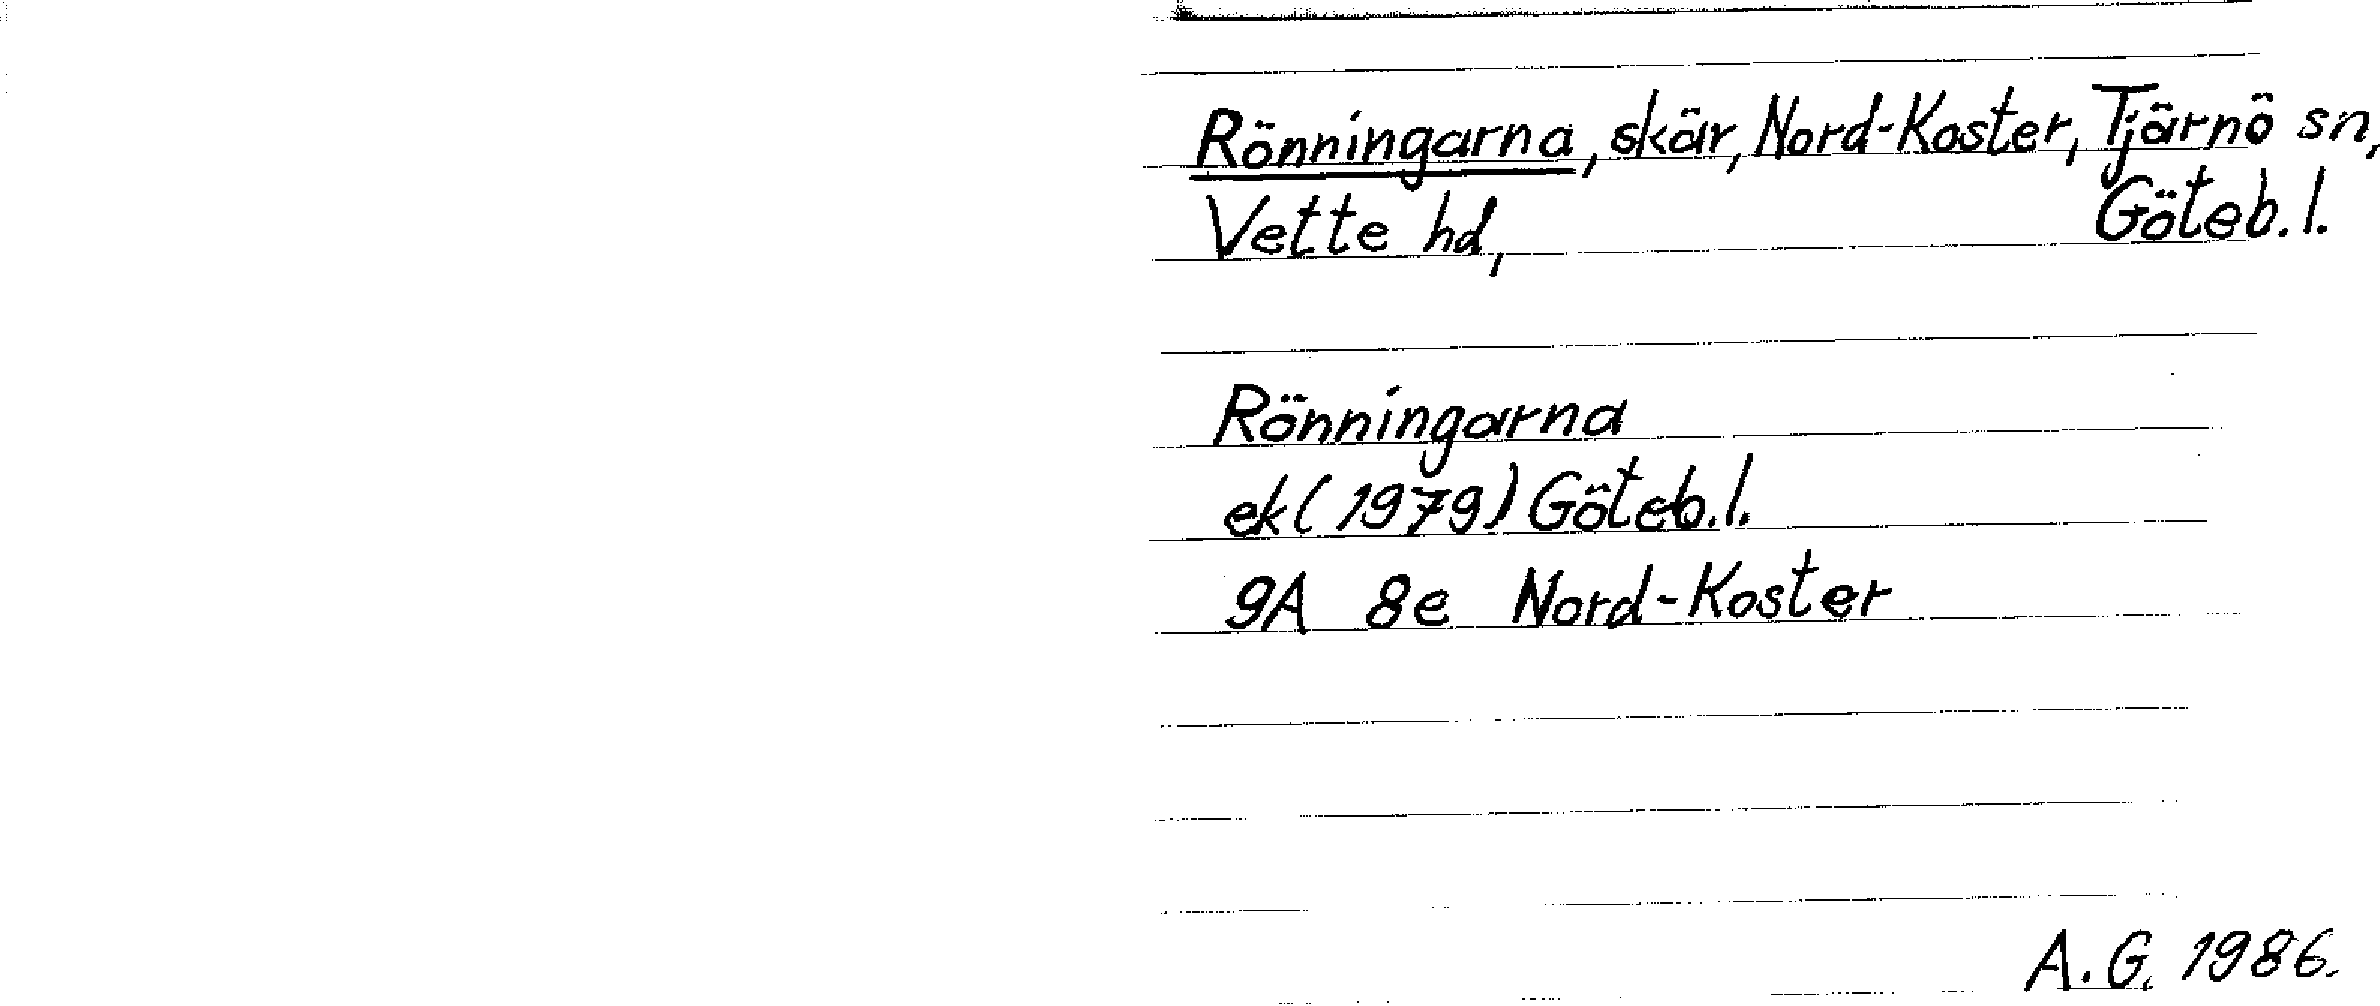 Rönningarna, skär, Nord-Koster, Tjärnö sn,
Vette hd, Göteb. l.
Rönningarna
ek (1979) Göteb. l.
9A 8e Nord-Koster
A. G. 1986.